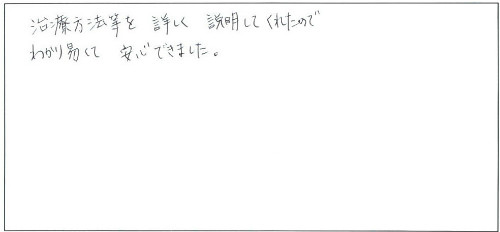 治療方法等を 詳しく 説明してくれたので
わかり易くて 安心できました。